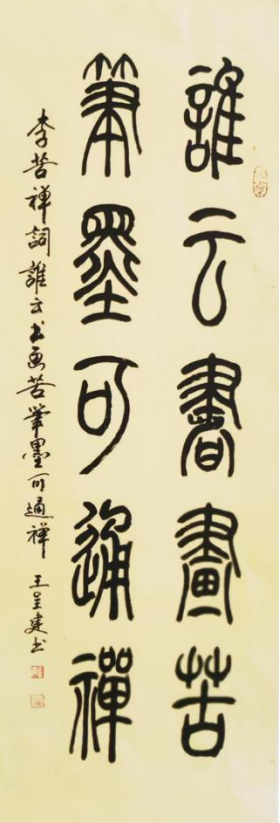 誰云書畫苦
筆墨可通禪
李苦禅詞誰云书画苦筆墨可通禅 王呈建书